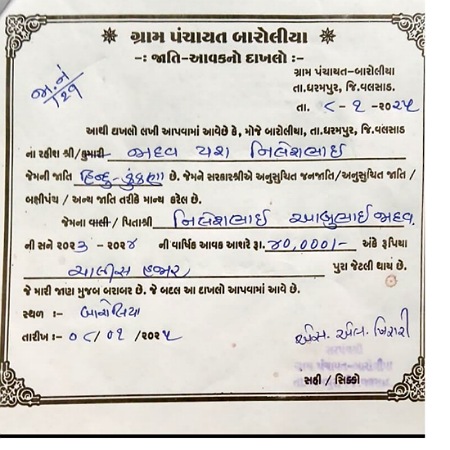 ❋ ગ્રામ પંચાયત બારોલીયા ❋
-: જાતિ-આવકનો દાખલો :-
જા.નં
129
ગ્રામ પંચાયત-બારોલીયા
તા.ધરમપુર, જિ.વલસાડ
તા. ૮-૧-૨૦૨૫
આથી દાખલો લખી આપવામાં આવેછે કે, મોજે બારોલીયા, તા.ધરમપુર, જિ.વલસાડ
ના રહીશ શ્રી/કુમારી- જાદવ યશ નિલેશભાઈ
જેમની જાતિ હિન્દુ-કુંકણા છે. જેમને સરકારશ્રીએ અનુસુચિત જનજાતિ/અનુસુચિત જાતિ /
બક્ષીપંચ / અન્ય જાતિ તરીકે માન્ય કરેલ છે.
જેમના વાલી/પિતાશ્રી નિલેશભાઈ જાદવ
ની સને ૨૦૨૩ -૨૦૨૪ ની વાર્ષિક આવક આશરે રૂા. ૪૦,૦૦૦/- અંકે રૂપિયા
ચાલીસ હજાર પુરા જેટલી થાય છે.
જે મારી જાણ મુજબ બરાબર છે. જે બદલ આ દાખલો આપવામાં આવે છે.
સ્થળ :- બારોલિયા
તારીખ :- ૦૮/૦૧ /૨૦૨૫
સરપંચશ્રી
ગ્રામ પંચાયત-બારોલીયા
સહી / સિક્કો